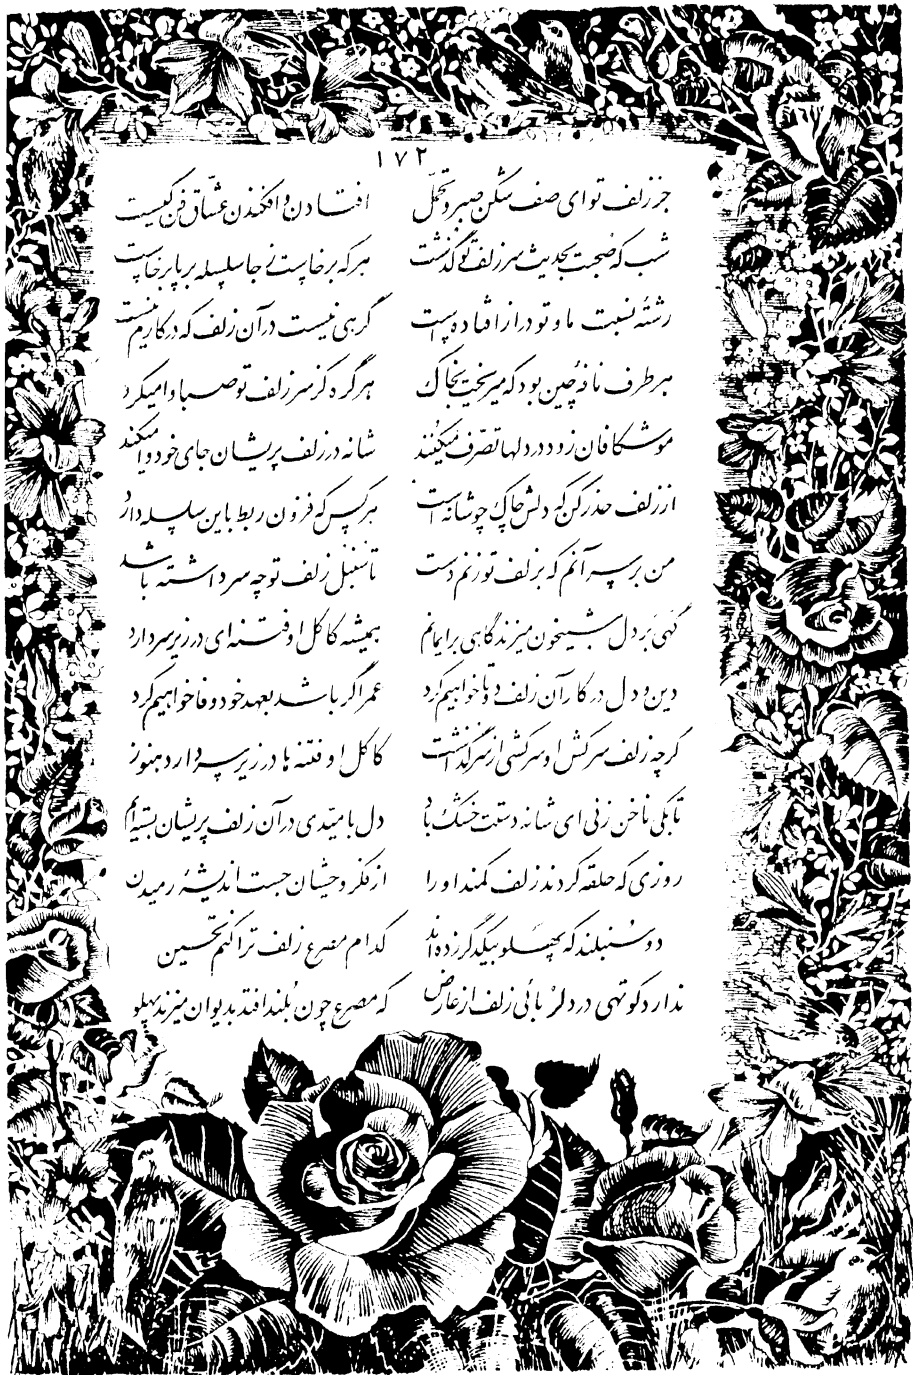 ۱۷۲
جز زلف تو ای صف شکن صبر و تحمّل افتادن و افکندن عشّاق فن کیست
شب که صحبت بحدیث سر زلف تو گذشت هر که برخاست ز جا سلسله بر پا برخاست
رشتهٔ نسبت ما و تو دراز افتاده است گرهی نیست در آن زلف که در کارم نیست
هر طرف نافهٔ چین بود که میریخت بخاک هر گره کز سر زلف تو صبا وا میکرد
موشکافان زود در دلها تصرّف میکنند شانه در زلف پریشان جای خود وا میکند
از زلف حذر کن که دلش چاک چو شانه است هر کس که فزون ربط باین سلسله دارد
من بر سر آنم که بزلف تو زنم دست تا سنبل زلف تو چه سر داشته باشد
گهی بر دل شبیخون میزند گاهی بر ایمانم همیشه کاکل او فتنه‌ای در زیر سر دارد
دین و دل در کار آن زلف دوتا خواهیم کرد عمر اگر باشد بعهد خود وفا خواهیم کرد
گرچه زلف سرکش او سرکشی از سر گذاشت کاکل او فتنه ها در زیر سر دارد هنوز
تا بکی ناخن زنی ای شانه دستت خشک باد دل بامیّدی در آن زلف پریشان بسته‌ایم
روزی که حلقه کردند زلف کمند او را از فکر وحشیان جست اندیشهٔ رمیدن
دو سنبلند که پهلو بیکدگر زده‌اند کدام مصرع زلف ترا کنم تحسین
ندارد کوتهی در دلربائی زلف از عارض که مصرع چون بلند افتد بدیوان میزند پهلو